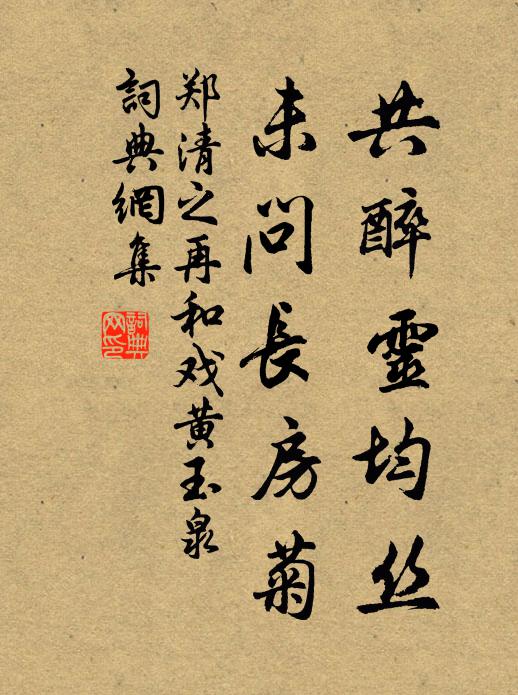 共醉靈均丝
未問長房菊
郑清之再和戏黄玉泉
詞典網集
詞典网印